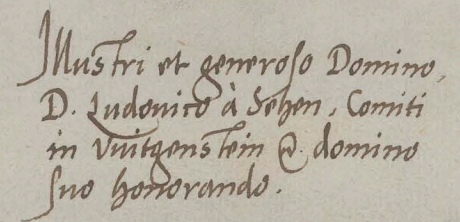 Illustri et generoso Domino,
D. Ludovico à Sehen, Comiti
in Vuitgenstein &. domino
suo honorando.